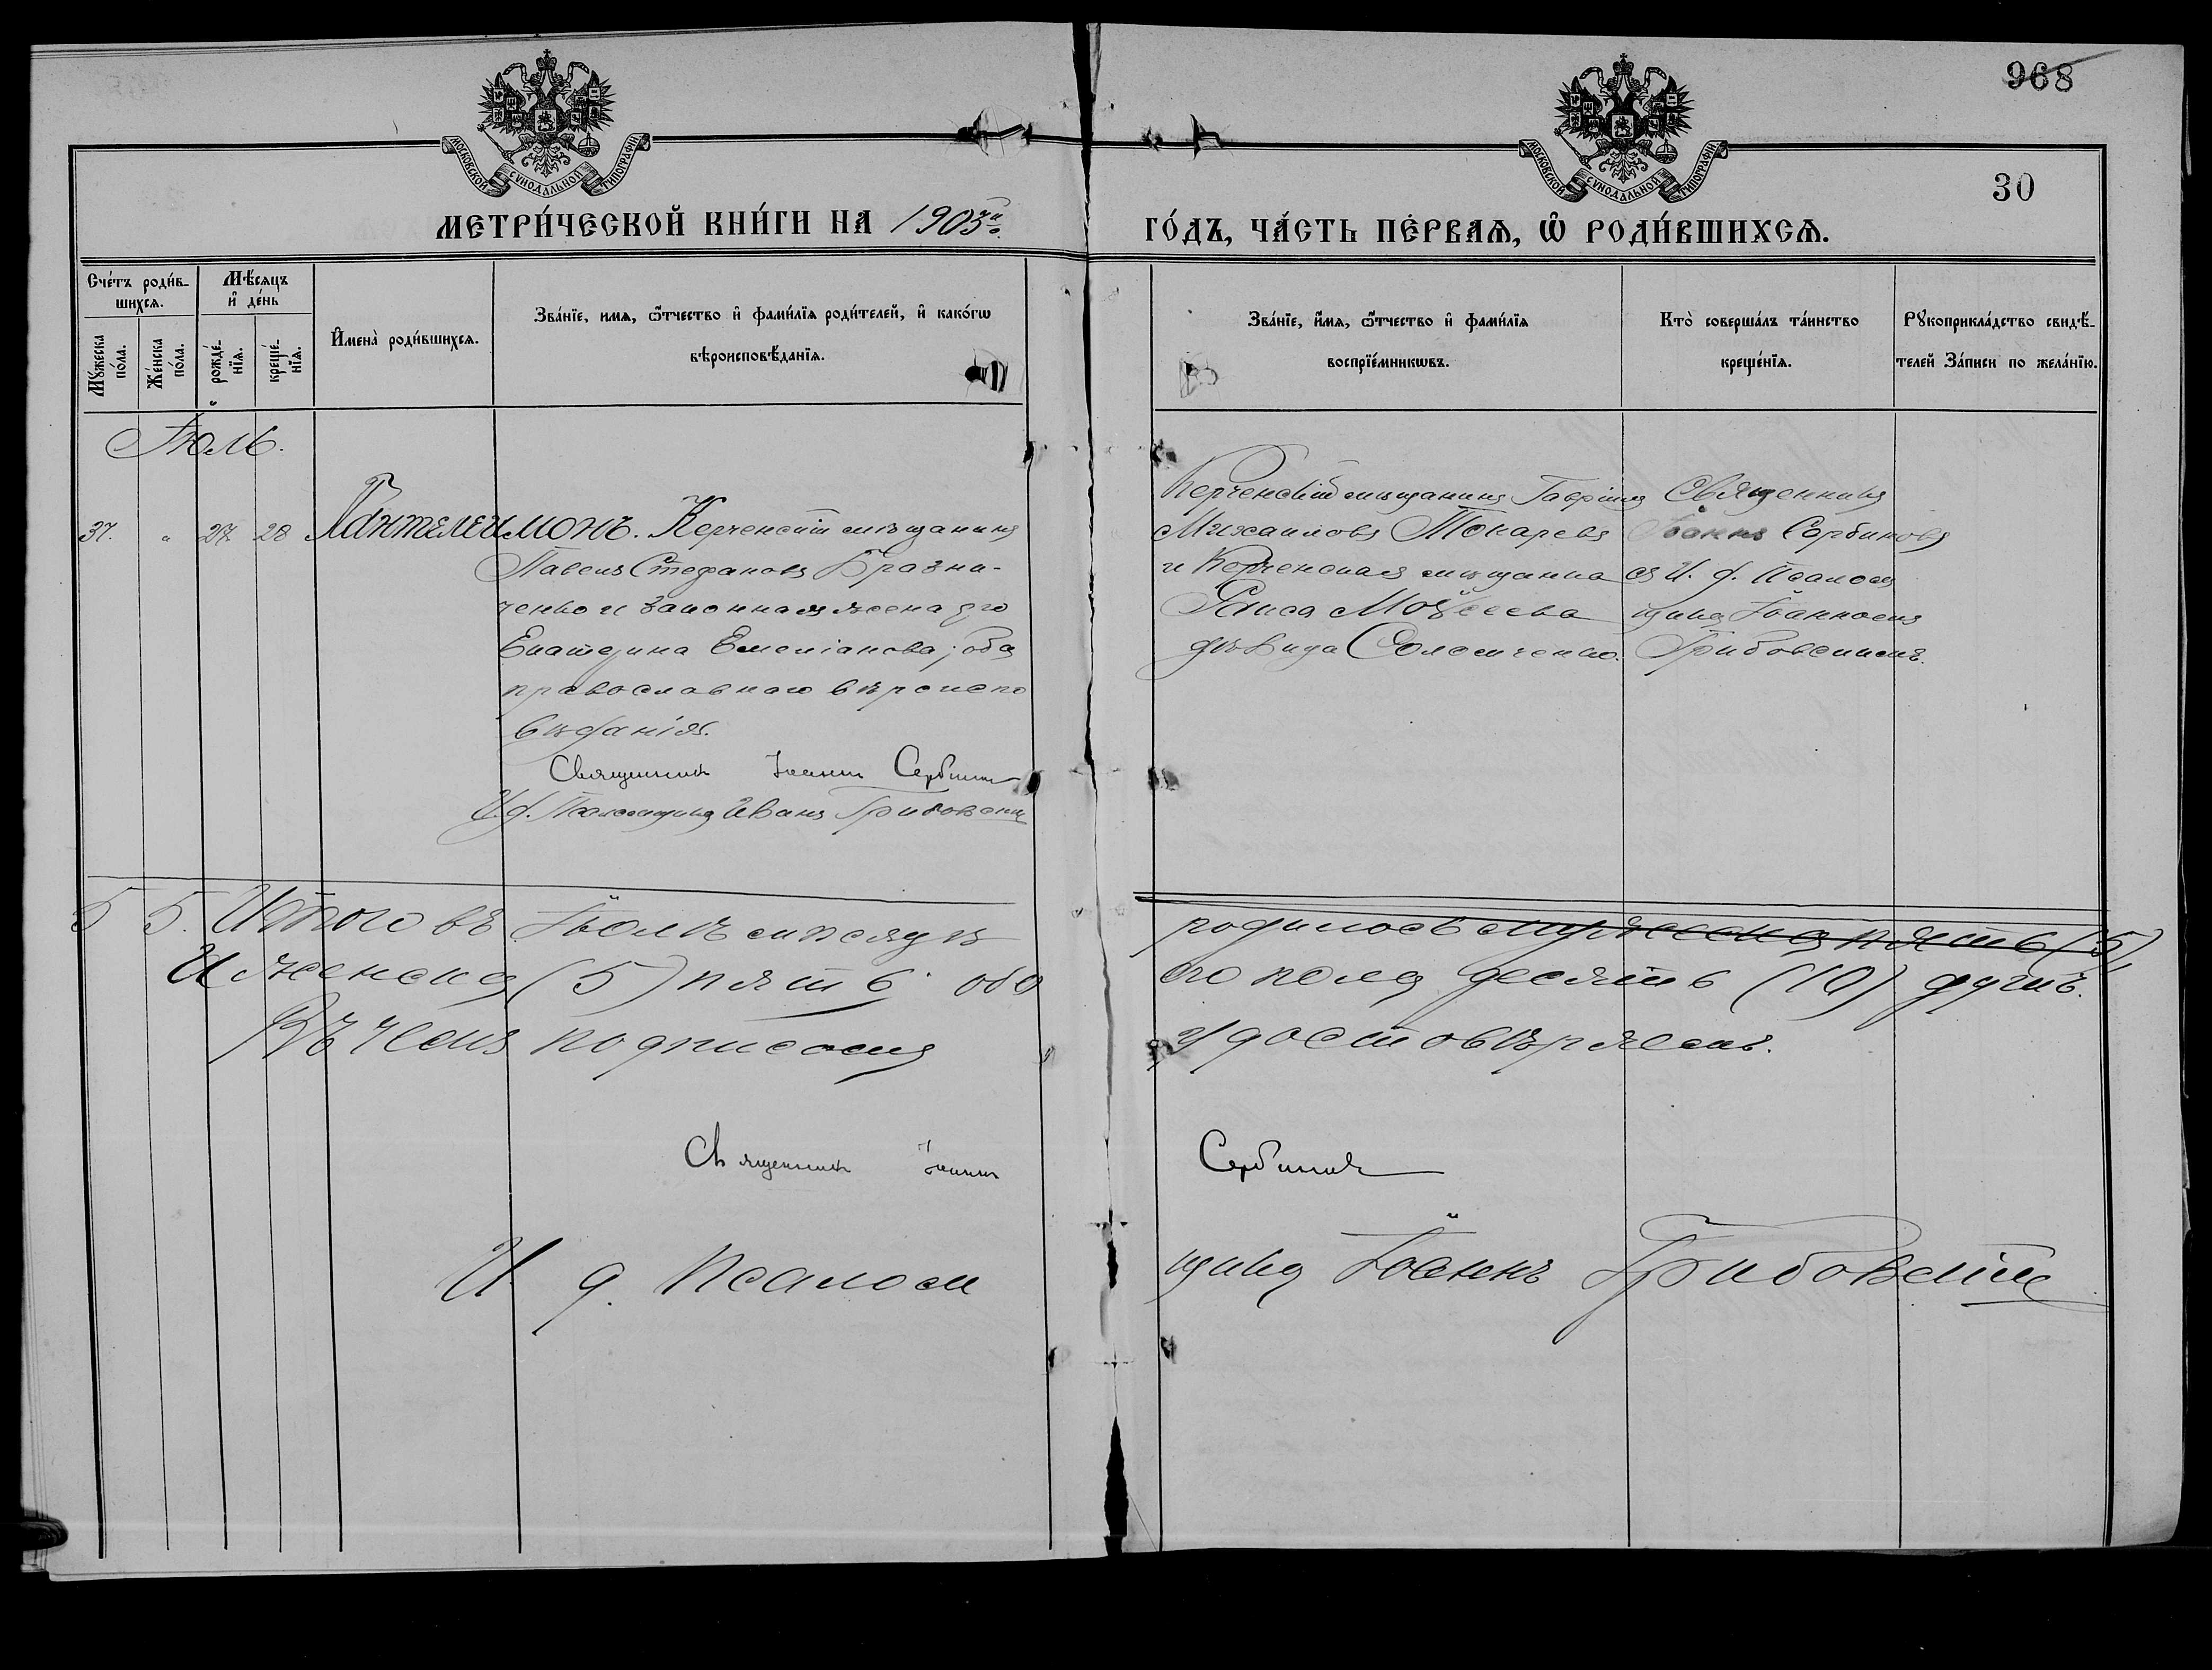 968
МОСКОВСКОЙ СУНОДАЛЬНОЙ ТИПОГРАФІИ
МОСКОВСКОЙ СУНОДАЛЬНОЙ ТИПОГРАФІИ
30
МЕТРИ́ЧЕСКОЙ КНИ́ГИ НА 1903й
ГО́ДЪ, ЧА́СТЬ ПЕ́РВАѦ, Ѡ҆ РОДИ́ВШИХСѦ.
Сче́тъ роди́в-
шихсѧ.
Мѣ́сѧцъ
и҆ де́нь
Мꙋ́жеска
по́ла.
Же́нска
по́ла.
рожде́-
нїѧ.
креще́-
нїѧ.
И҆мена̀ роди́вшихсѧ.
Зва́нїе, имѧ, ѿтчество и҆ фами́лїѧ роди́телей, и҆ како́гѡ
вѣроисповѣ́данїѧ.
Зва́нїе, и҆́мѧ, ѿтчество и҆ фами́лїѧ
воспрїе́мникѡвъ.
Кто̀ соверша́лъ та́инство
креще́нїѧ.
Рꙋкоприкла́дство свидѣ́-
телей За́писи по жела́нїю.
Іюль.
37. " 27 28 Пантелеимонъ. Керченскій мѣщанинъ
Павелъ Стефановъ Бразни-
ченко и законная жена его
Екатерина Емеліанова; оба
православнаго вѣроиспо
вѣданія.
Священникъ Іоаннъ Сербинов
И. д. Псаломщика Иванъ Грибовскій
Керченскій мѣщанинъ Гавріилъ
Михаиловъ Токаревъ
и Керченская мѣщанка
Раиса Моѵсеева
дѣвица Соломченко.
Священникъ
Іоаннъ Сербиновъ
съ И. д. Псалом
щика Іоанномъ
Грибовскимъ.
5 5. Итого въ Іюлѣ мѣсяцѣ родилось мужеска пять (5),
И женска (5) пять обо его пола десять (10) душъ.
Въ чемъ подписомъ удостовѣряемъ.
Священникъ Іоаннъ Сербиновъ
И д. Псалом щика Іоаннъ Грибовскій